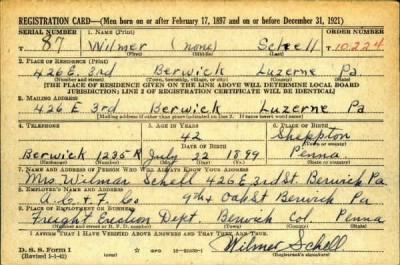 REGISTRATION CARD—(Men born on or after February 17, 1897 and on or before December 31, 1921)
SERIAL NUMBER 1. NAME (Print) ORDER NUMBER
U 87 Wilmer (none) Schell T 10,224
(First) (Middle) (Last)
2. PLACE OF RESIDENCE (Print)
426 E. 3rd Berwick Luzerne Pa
(Number and street) (Town, township, village, or city) (County) (State)
[THE PLACE OF RESIDENCE GIVEN ON THE LINE ABOVE WILL DETERMINE LOCAL BOARD JURISDICTION; LINE 2 OF REGISTRATION CERTIFICATE WILL BE IDENTICAL]
3. MAILING ADDRESS
426 E 3rd Berwick Luzerne Pa
[Mailing address if other than place indicated on line 2. If same insert word same]
4. TELEPHONE 5. AGE IN YEARS 6. PLACE OF BIRTH
42 Sheppton
DATE OF BIRTH (Town or county)
Berwick 1235R July 22 1899 Penna
(Exchange) (Number) (Mo.) (Day) (Yr.) (State or country)
7. NAME AND ADDRESS OF PERSON WHO WILL ALWAYS KNOW YOUR ADDRESS
Mrs Wilmar Schell 426 E 3rd St. Berwick Pa
8. EMPLOYER'S NAME AND ADDRESS
A. C. + F. Co 9th + Oak St Berwick Pa
9. PLACE OF EMPLOYMENT OR BUSINESS
Freight Erection Dept. Berwick Col. Penna
(Number and street or R. F. D. number) (Town) (County) (State)
I AFFIRM THAT I HAVE VERIFIED ABOVE ANSWERS AND THAT THEY ARE TRUE.
D. S. S. Form 1
(Revised 1-1-42) (over) Wilmer Schell